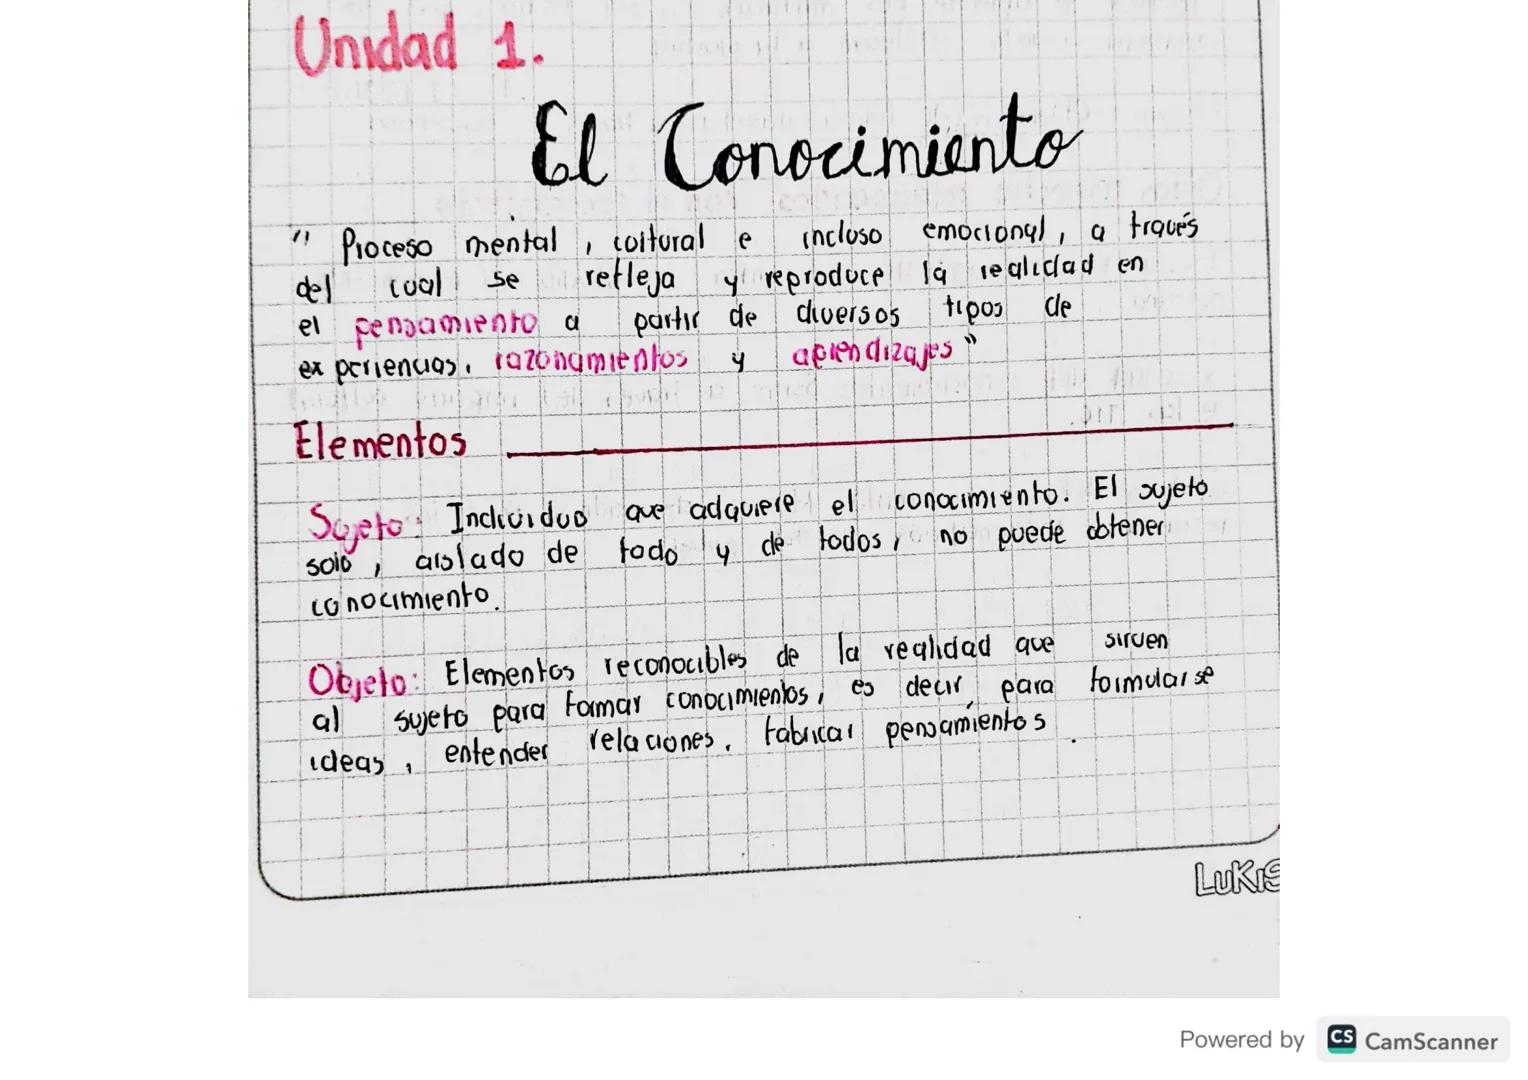 Unidad 1.
El Conocimiento
" Proceso mental, cultural e incluso emocional, a través
del cual se refleja y reproduce la realidad en
el pensamiento a partir de diversos tipos de
experiencias, razonamientos y aprendizajes"
Elementos
Sujeto: Individuo que adquiere el conocimiento. El sujeto
solo, aislado de todo y de todos, no puede obtener
conocimiento.
Objeto: Elementos reconocibles de la realidad que sirven
al sujeto para formar conocimientos, es decir para formularse
ideas, entender relaciones, fabricar pensamientos.
LuKiS
Powered by CS CamScanner